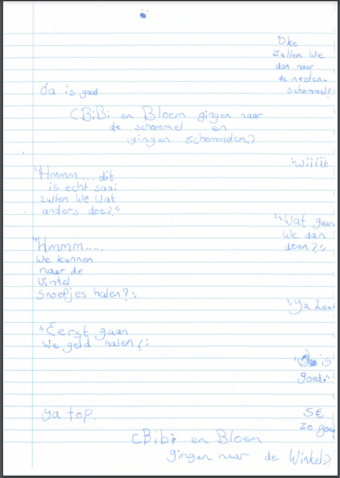 Oke
zullen we
dan naar
de nesten-
schommel?
da is goed
(Bibi en Bloem gingen naar
de schommel en
gingen schommelen)
"Wiiii
"Hmmm.... dit
is echt saai
zullen we wat
anders doe?"
"Wat gaan
we dan
doen?"
"Hmmm....
We kunnen
naar de
winkel
snoepjes halen?"
"ya
"Eerst gaan
We geld halen!"
is
goed"
ya top.
zo
(Bibi en Bloem
gingen naar de Winkel)